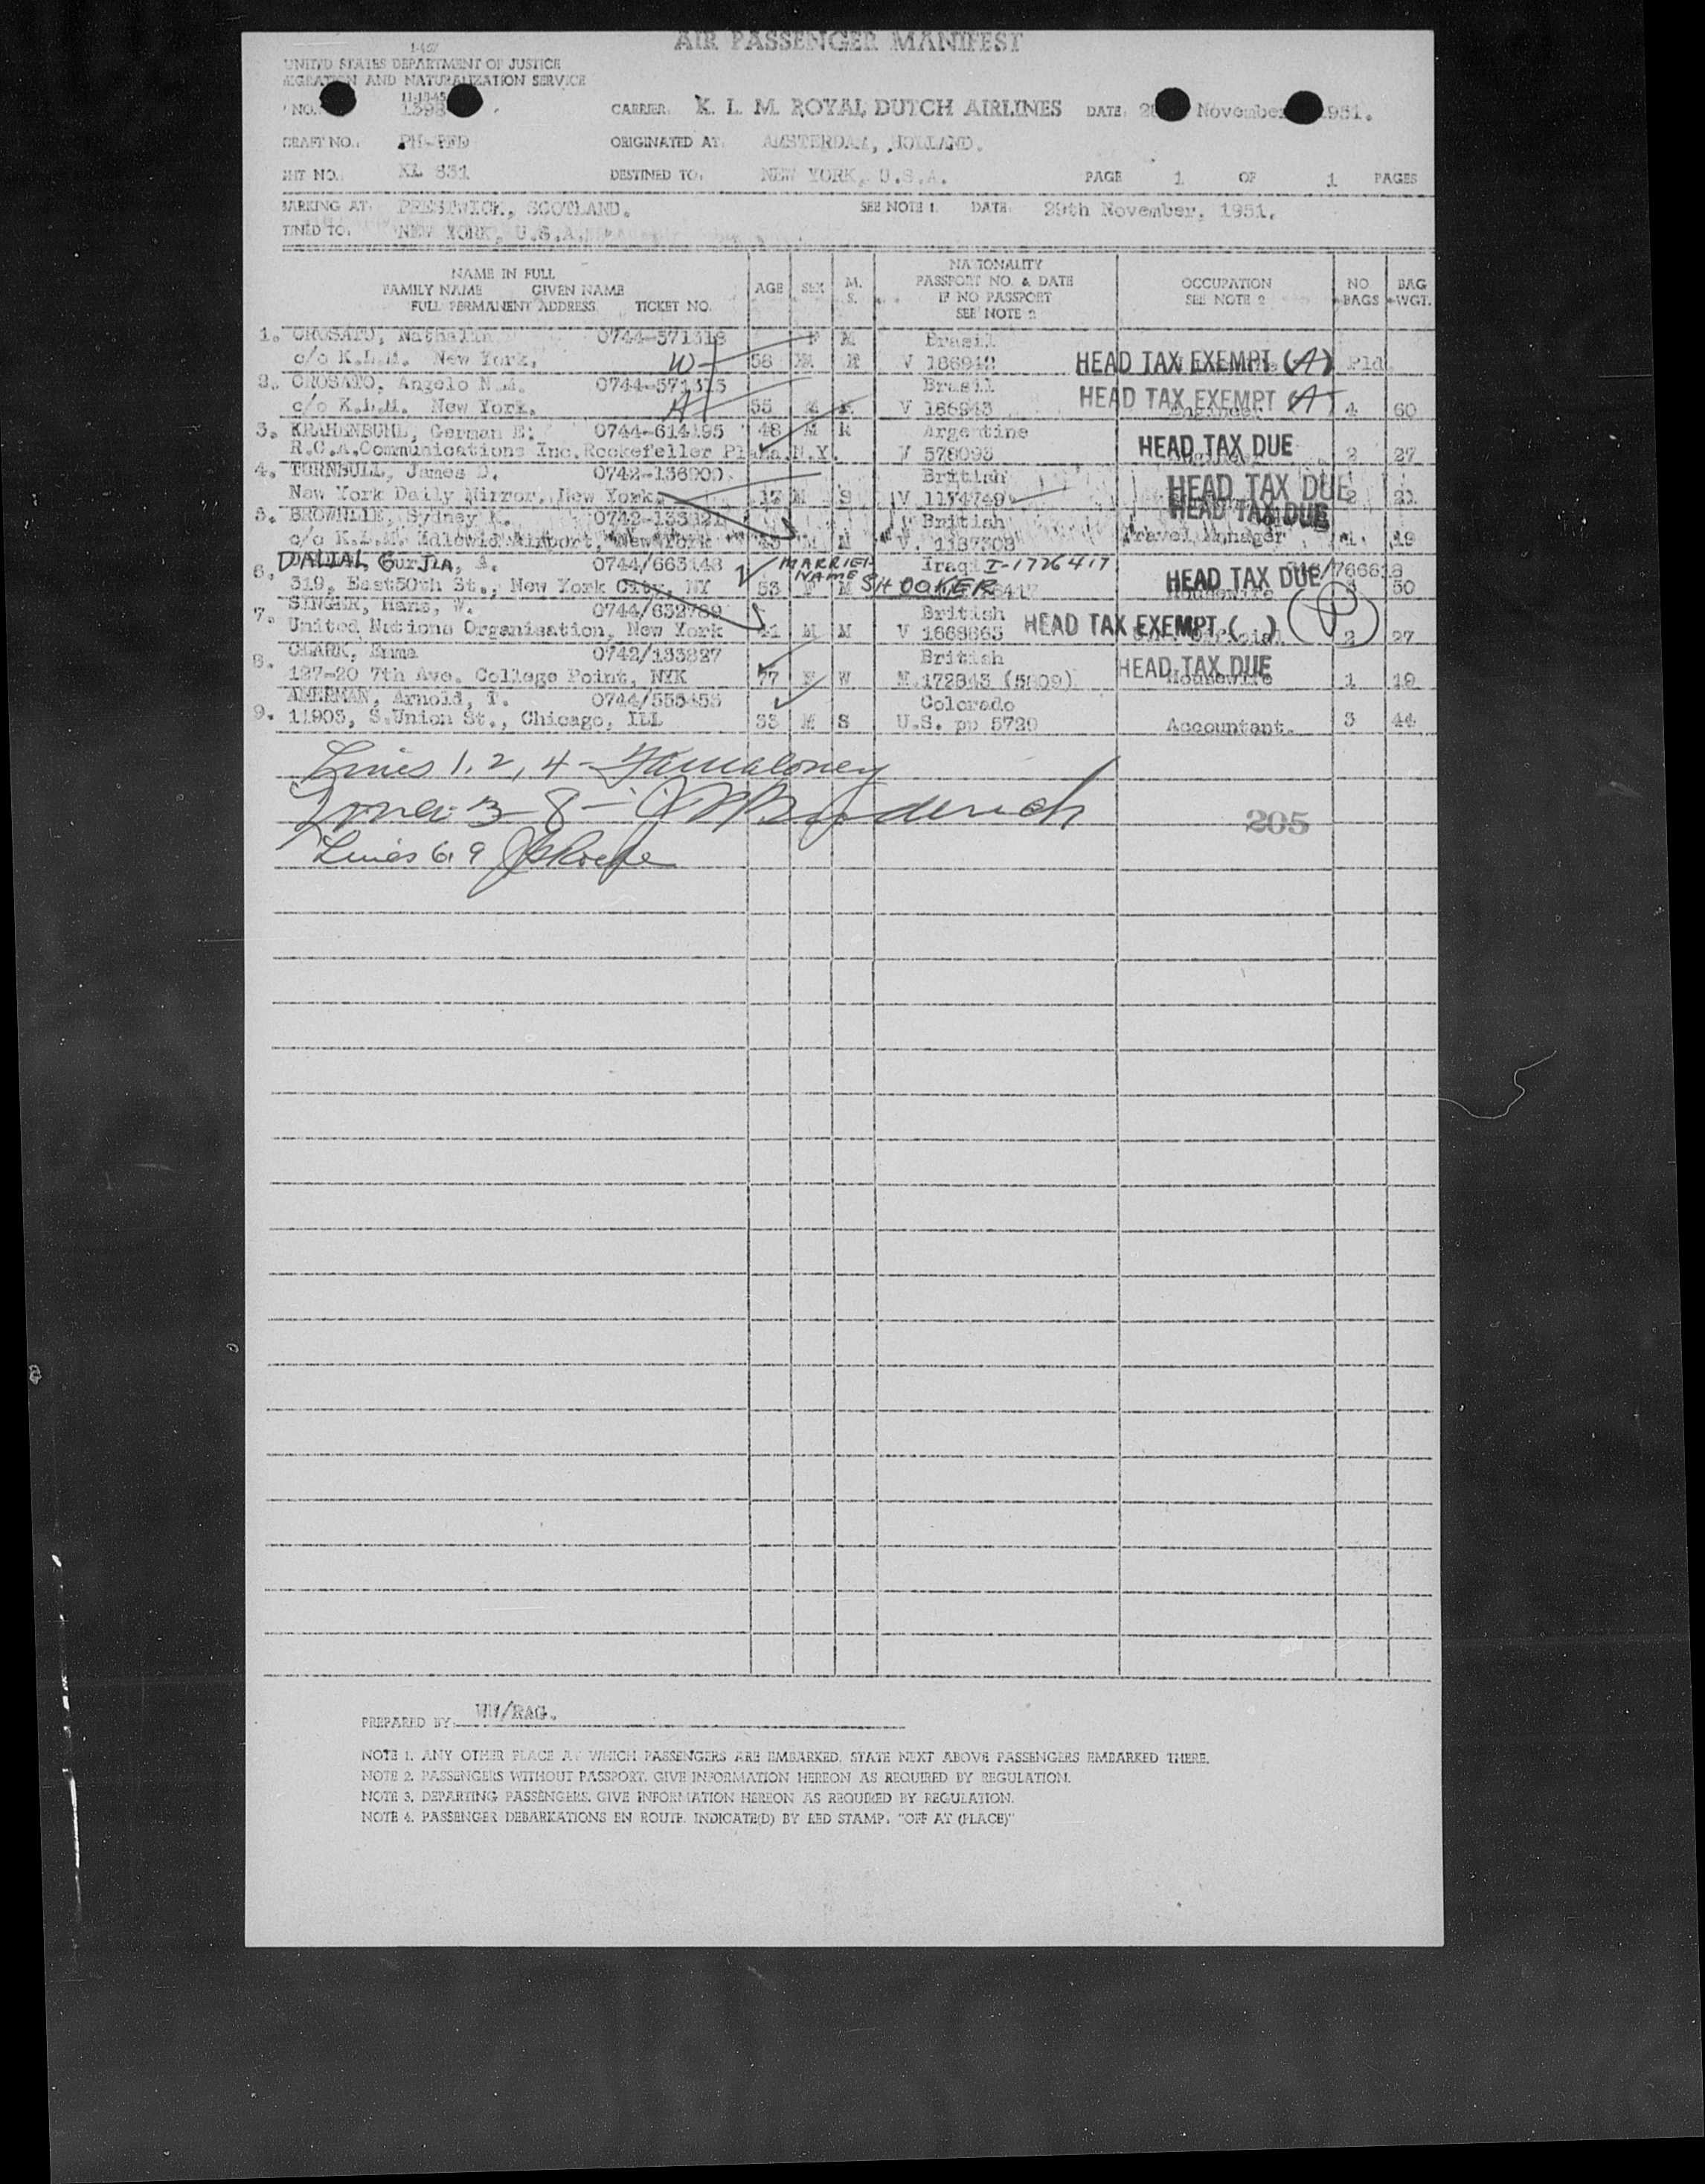 AIR PASSENGER MANIFEST
UNITED STATES DEPARTMENT OF JUSTICE
MIGRATION AND NATURALIZATION SERVICE
NO. CARRIER: K. L. M. ROYAL DUTCH AIRLINES DATE: November 1951.
CRAFT NO.: ORIGINATED AT: AMSTERDAM, HOLLAND.
GHT NO.: KL 631 DESTINED TO: NEW YORK, U.S.A. PAGE 1 OF 1 PAGES
BARKING AT: PRESTWICK, SCOTLAND. SEE NOTE 1. DATE: 29th November, 1951.
TINED TO: NEW YORK, U.S.A.
NAME IN FULL
FAMILY NAME GIVEN NAME
FULL PERMANENT ADDRESS TICKET NO.
AGE SEX M. S.
NATIONALITY
PASSPORT NO. & DATE
IF NO PASSPORT
SEE NOTE 2
OCCUPATION
SEE NOTE 2
NO. BAGS BAG WGT.
1. CROSATO, 0744-571318 F M Brasil
c/o K.L.M. New York. W 56 V 186942 HEAD TAX EXEMPT (A) Pld
2. CROSATO, Angelo N.M. 0744-571315 Brasil
c/o K.L.M. New York. A 55 M M V 186943 HEAD TAX EXEMPT A 4 60
3. KRAHENBUHL, German E: 0744-614195 48 M M Argentine
R.C.A.Communications Inc.Rockefeller Plaza,N.Y. V 578093 HEAD TAX DUE 2 27
4. TURNBULL, James D. 0742-136900 British
New York Daily Mirror, New York. 17 M S V 1174749 HEAD TAX DUE 2 21
5. BROWNLIE, Sydney 0742-133821 British HEAD TAX DUE
c/o K.L.M. Idlewild Airport, New York M M V. 1187308 Travel Manager 1 19
6. DALLAL, GURJIA, 0744/663148 MARRIED NAME SHOOKER Iraqi I-1726417
319, East50th St., New York City, NY 53 F M HEAD TAX DUE Housewife 50
7. SINGER, Hans, W. 0744/632789 British
United Nations Organisation, New York 41 M M V 1668663 HEAD TAX EXEMPT ( ) Official (P) 2 27
8. CLARK, Emma 0742/133827 British
127-20 7th Ave. College Point, NYK 77 F W M.172843 (5809) HEAD TAX DUE Housewife 1 19
9. AMERMAN, Arnold, T. 0744/555453 Colorado
11903, S.Union St., Chicago, ILL 33 M S U.S. pp 5729 Accountant. 3 44
Lines 1, 2, 4 - Maloney
Lines 3 - 8 - Broderick
205
Lines 6, 9
PREPARED BY: WW/RAG.
NOTE 1. ANY OTHER PLACE AT WHICH PASSENGERS ARE EMBARKED, STATE NEXT ABOVE PASSENGERS EMBARKED THERE.
NOTE 2. PASSENGERS WITHOUT PASSPORT. GIVE INFORMATION HEREON AS REQUIRED BY REGULATION.
NOTE 3. DEPARTING PASSENGERS. GIVE INFORMATION HEREON AS REQUIRED BY REGULATION.
NOTE 4. PASSENGER DEBARKATIONS EN ROUTE INDICATE(D) BY RED STAMP. "OFF AT (PLACE)"